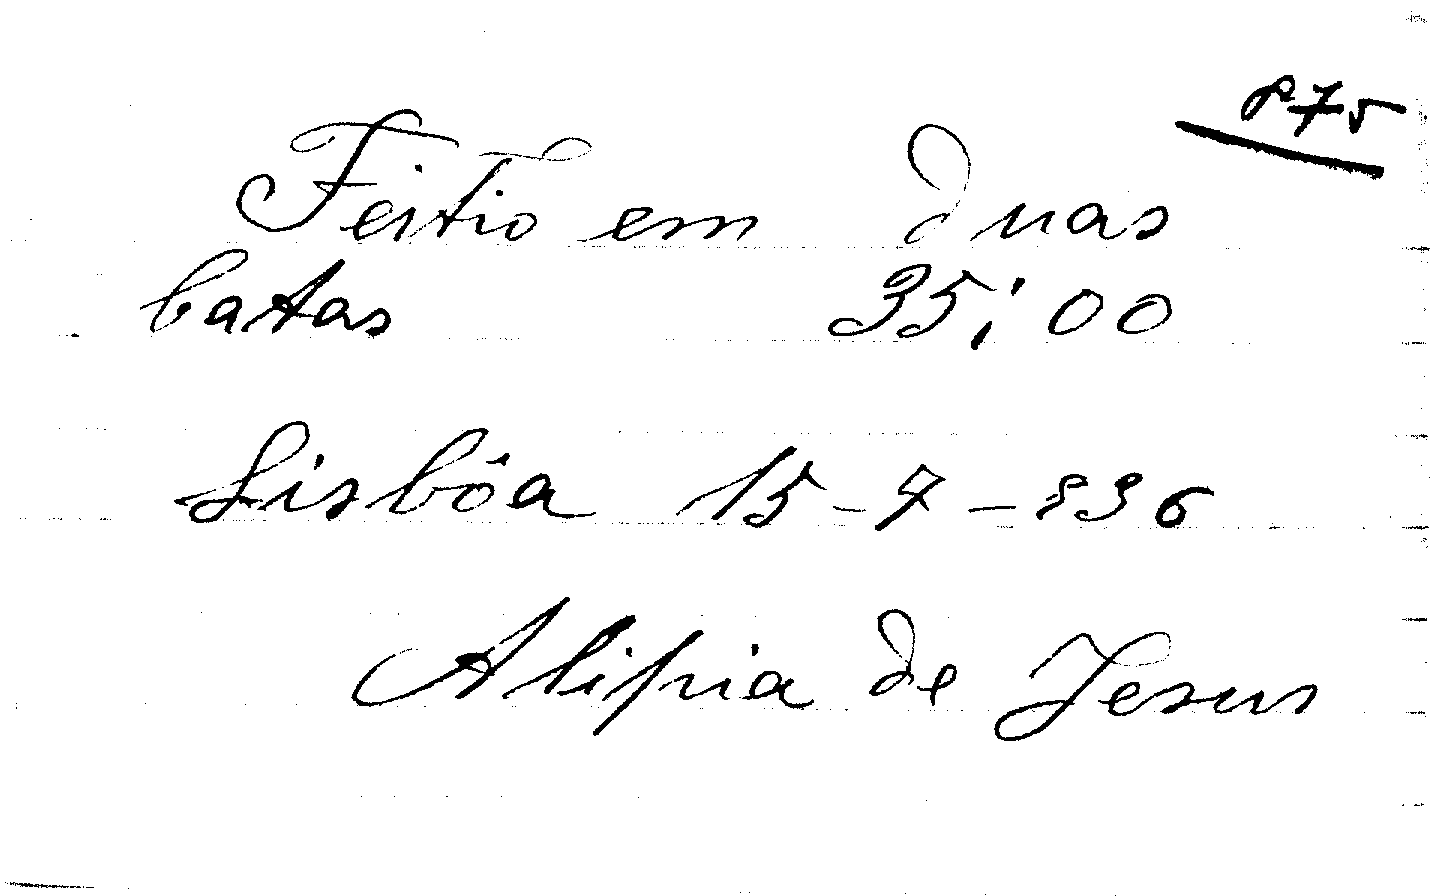 875
Feitio em duas
batas 35;00
Lisbôa 15-7-936
Alipia de Jesus